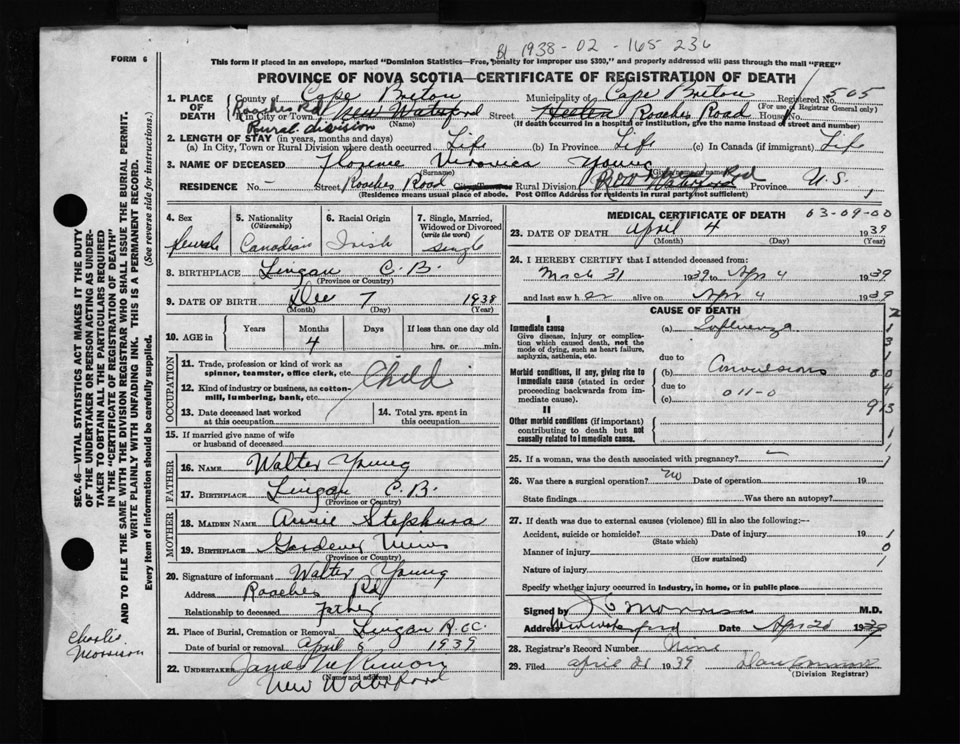 1938-02-165 236
FORM 6
This form if placed in an envelope, marked "Dominion Statistics—Free, (penalty for improper use $300), and properly addressed will pass through the mail "FREE"
PROVINCE OF NOVA SCOTIA—CERTIFICATE OF REGISTRATION OF DEATH
1. PLACE OF DEATH County of Cape Breton Municipality of Cape Breton Registered No. 505
(For use of Registrar General only)
Roaches Rd In City or Town New Waterford Street Roaches Road House No.
Rural division (Name) (If death occurred in a hospital or institution, give the name instead of street and number)
2. LENGTH OF STAY (in years, months and days)
(a) In City, Town or Rural Division where death occurred Life (b) In Province Life (c) In Canada (if immigrant) Life
3. NAME OF DECEASED Florence Veronica Young
(Surname) (Given name or names)
RESIDENCE No. - Street Roaches Road City/Town or Rural Division New Waterford Province N.S.
(Residence means usual place of abode. Post Office Address for residents in rural parts not sufficient) 1
4. Sex Female
5. Nationality (Citizenship) Canadian
6. Racial Origin Irish
7. Single, Married, Widowed or Divorced (write the word) Single
8. BIRTHPLACE Lingan C.B.
(Province or Country)
9. DATE OF BIRTH Dec 7 1938
(Month) (Day) (Year)
10. AGE in Years Months 4 Days If less than one day old hrs. or min.
OCCUPATION
11. Trade, profession or kind of work as spinner, teamster, office clerk, etc. Child
12. Kind of industry or business, as cotton-mill, lumbering, bank, etc.
13. Date deceased last worked at this occupation
14. Total yrs. spent in this occupation
15. If married give name of wife or husband of deceased
FATHER
16. NAME Walter Young
17. BIRTHPLACE Lingan C.B.
(Province or Country)
MOTHER
18. MAIDEN NAME Annie
19. BIRTHPLACE Gardener Mines
(Province or Country)
20. Signature of informant Walter Young
Address Roaches Rd
Relationship to deceased Father
21. Place of Burial, Cremation or Removal Lingan R.C.C.
Date of burial or removal April 1939
22. UNDERTAKER
(Name and address)
New Waterford
MEDICAL CERTIFICATE OF DEATH 03-09-00
23. DATE OF DEATH April 4 1939
(Month) (Day) (Year)
24. I HEREBY CERTIFY that I attended deceased from:
Mach 31 1939 to Apr 4 1939
and last saw her alive on Apr 4 1939
CAUSE OF DEATH
I
Immediate cause (a) Influenza
Give disease, injury or complication which caused death, not the mode of dying, such as heart failure, asphyxia, asthenia, etc.
due to
Morbid conditions, if any, giving rise to immediate cause (stated in order proceeding backwards from immediate cause). (b) Convulsions
due to
(c) 011-0
II
Other morbid conditions (if important) contributing to death but not causally related to immediate cause.
25. If a woman, was the death associated with pregnancy?
26. Was there a surgical operation? No Date of operation 19
State findings Was there an autopsy?
27. If death was due to external causes (violence) fill in also the following:—
Accident, suicide or homicide? Date of injury 19
(State which)
Manner of injury
(How sustained)
Nature of injury
Specify whether injury occurred in industry, in home, or in public place
Signed by M.D.
Address New Waterford Date Apr 20 1939
28. Registrar's Record Number Nine
29. Filed April 21 1939
(Division Registrar)
SEC. 46—VITAL STATISTICS ACT MAKES IT THE DUTY
OF THE UNDERTAKER OR PERSON ACTING AS UNDER-
TAKER TO OBTAIN ALL THE PARTICULARS REQUIRED
IN THE "CERTIFICATE OF REGISTRATION OF DEATH"
AND TO FILE THE SAME WITH THE DIVISION REGISTRAR WHO SHALL ISSUE THE BURIAL PERMIT.
WRITE PLAINLY WITH UNFADING INK. THIS IS A PERMANENT RECORD.
Every item of information should be carefully supplied. (See reverse side for instructions.)
Charlie
Morrison